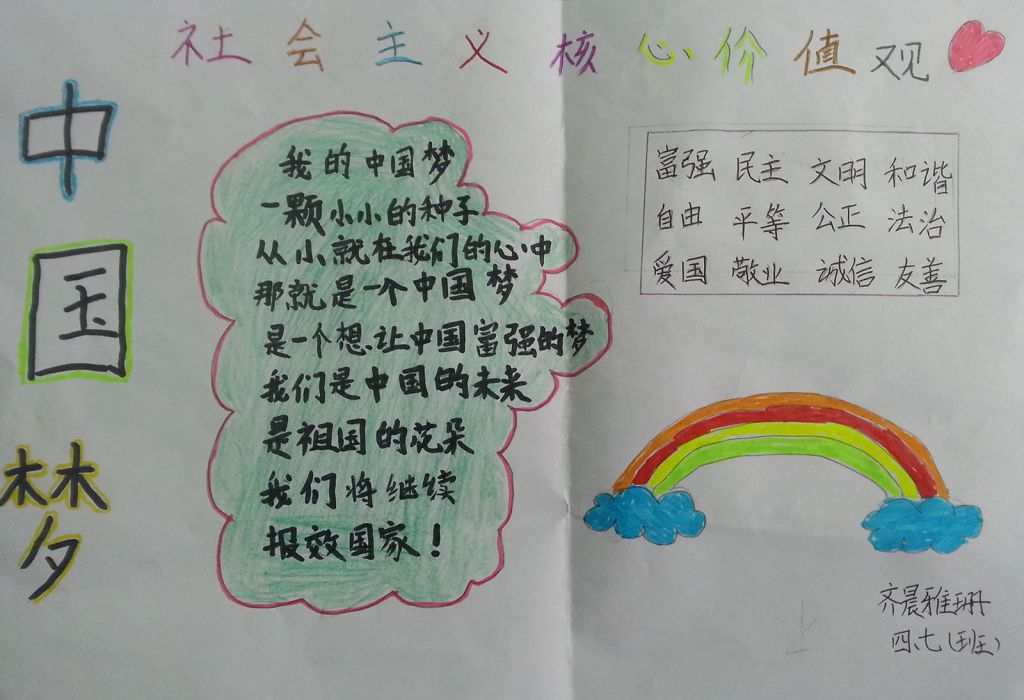 社会主义核心价值观
中国梦
我的中国梦
一颗小小的种子
从小就在我们的心中
那就是一个中国梦
是一个想让中国富强的梦
我们是中国的未来
是祖国的花朵
我们将继续
报效国家！
富强 民主 文明 和谐
自由 平等 公正 法治
爱国 敬业 诚信 友善
齐晨雅珊
四、七（班）